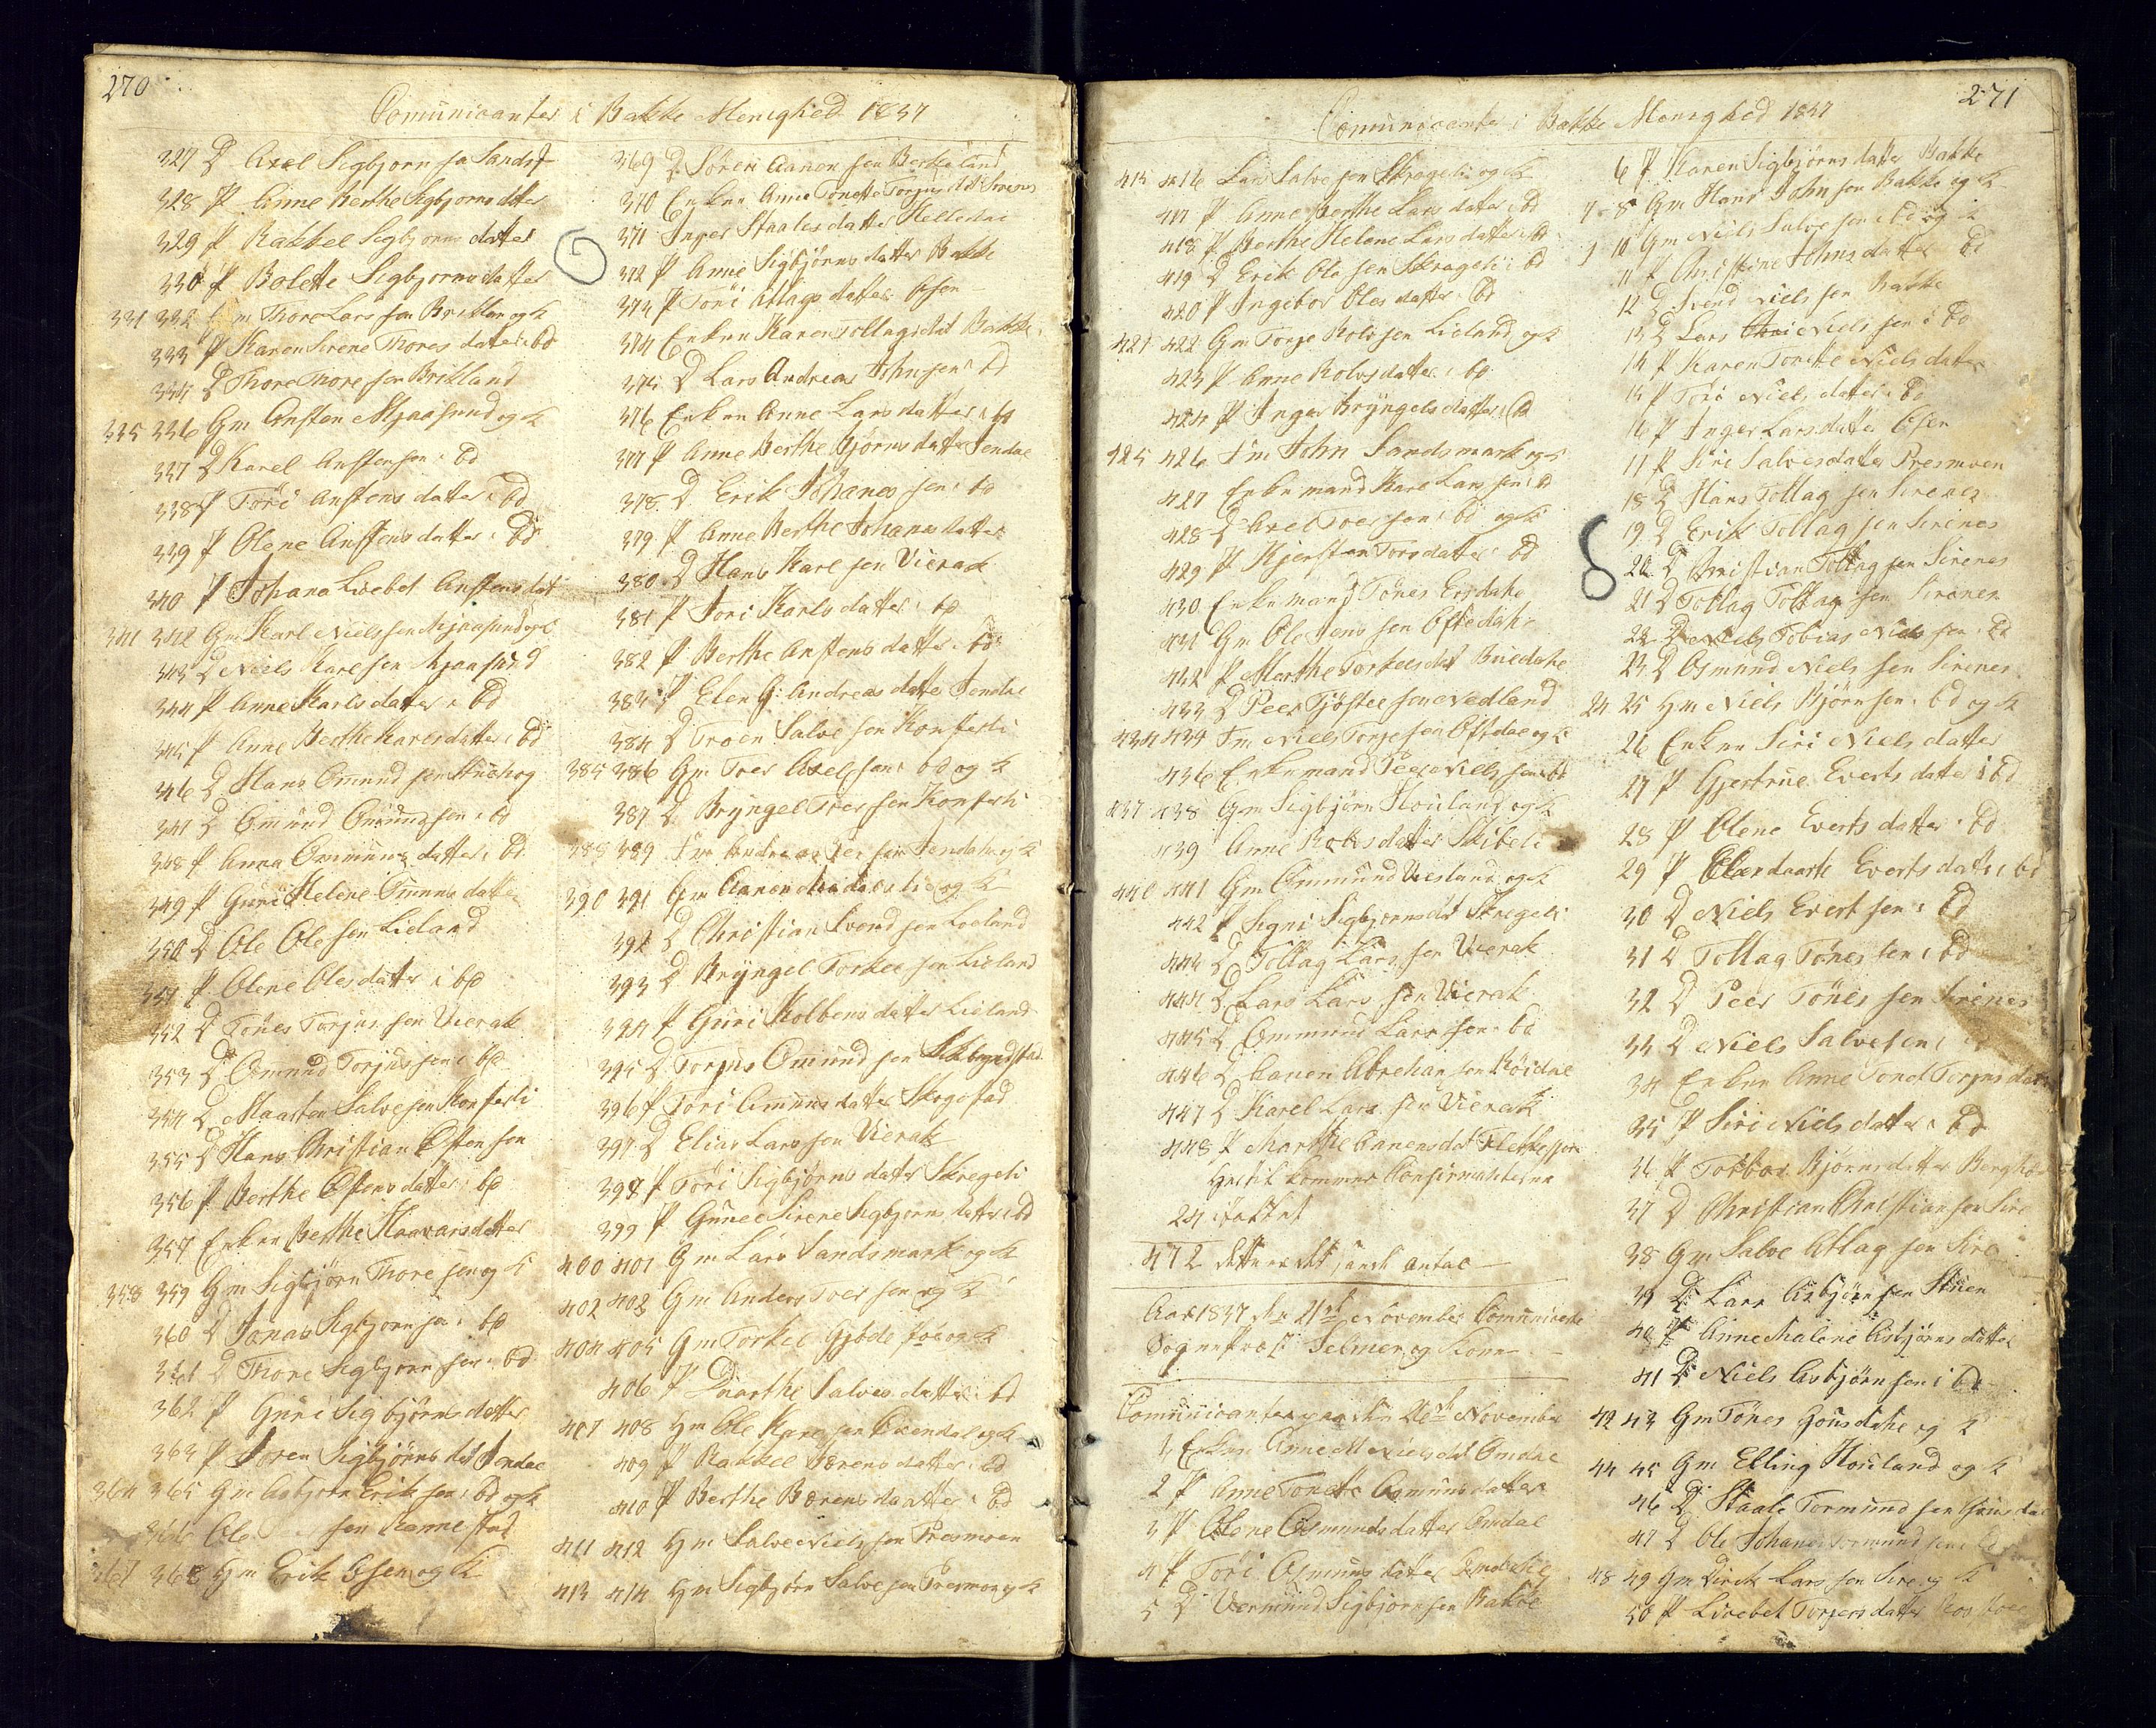 270
Comunicanter i Bakke Menighed 1837
327 D Axel Sigbjorn sa Sandsf
328 P Anne Berthe Sigbjorns dtter
329 P Rakkel Sigbjorns datter
330 P Bolette Sigbjorns datter
331 332 Gm Thore Lars sen Brekkan og K
333 P Karen Sirene Thores datter i bd
334 D Thore Thore sen Birkland
335 336 Gm Ansten Mjaasund og K
337 D Karel Ansten sen i bd
338 P Töri Anstens datter i bd
339 P Olene Anstens datter i bd
340 P Johana Lisebet Anstens dat
341 342 Gm Karl Niels sen Mjaasund og K
343 D Niels Karl sen Mjaasund
344 P Anne Karls datter i bd
345 P Anne Berthe Karels datter i bd
346 D Hans Omund sen
347 D Omund Omund sen i bd
348 P Anna Ommuns datter i bd
349 P Guri Helene Omuns datter
350 D Ole Ole sen Lieland
351 P Olene Oles datter i bd
352 D Tönes Torjus sen Vierak
353 D Omund Torjus sen i bd
354 D Maarten Salve sen Konfesli
355 D Hans Christian Osten sen
356 P Berthe Ostens datter i bd
357 Enken Berthe Haavars datter
358 359 Gm Sigbjörn Thore sen og K
360 D Jonas Sigbjorn sa i bd
361 D Thore Sigbjorn sen i bd
362 P Guri Sigbjörns datter
363 P Soren Sigbjörns dat Jendal
364 365 Gm Asbjorn Erik sen i bd og K
366 Ole sen Rannestad
367 368 Hm Erik Osen og K
369 D Sören Aanen sen Berkeland
370 Enken Anne Tonette Torjus dat Sirenes
371 Inger Staales datter Helledal
372 P Anne Sigbjörns datter Bakke
373 P Töri Atlags datter Osen
374 Enken Karen Tollags dat Bakke
375 D Lars Andreas John sen i bd
376 Enken Anne Lars datter i bd
377 P Anne Berthe Bjørns datter Jendal
378 D Erik Johanes sen i bd
379 P Anne Berthe Johanes datter
380 D Hans Karl sen Vierak
381 P Jori Karls datter i bd
382 P Berthe Anstens datter i bd
383 P Elen G: Andreas datter Jendal
384 D Troen Salve sen Konfesli
385 386 Gm Toer Axel sen i bd og K
387 D Bryngel Toer sen Konfesli
388 389 Fm Andreas Peer sen Jendal og K
390 391 Gm Aanen og K
392 D Christian Svend sen Loeland
393 D Bryngel Torkel sen Lieland
394 P Guri Kolbens datter Lieland
395 D Torjus Omund sen
396 P Töri Omuns datter Skogestad
397 D Elias Lars sen Vierak
398 P Töri Sigbjörns datter Skregeli
399 P Gunel Sirene Sigbjorns datter i bd
400 401 Gm Lars Sandsmark og K
402 403 Gm Anders Toer sen og K
404 405 Gm Torkel og K
406 P Maarthe Salves datter i bd
407 408 Hm Ole Karl sen Oxendal og K
409 P Rakkel Sorens datter i bd
410 P Berthe Borens daatter i bd
411 412 Hm Salve Niels sen Presmoen
413 414 Hm Sigbjörn Salve sen Presmoen og K
271
Comunicanter i Bakke Menighed 1837
415 416 Lars Salve sen Skregeli og K
417 P Anne Berthe Lars datter i bd
418 P Berthe Helene Lars datter i bd
419 D Erik Ole sen Skregeli i bd
420 P Ingebor Oles datter i bd
421 422 Gm Torge Kolv sen Lieland og K
423 P Anne Kolvs datter i bd
424 P Inger Bryngels datter i bd
425 426 Fm John Sandsmark og K
427 Enkemand Karl Lars sen i bd
428 D Axel Toer sen i bd og K
429 P Kjersten Tors datter i bd
430 Enkemand Tönes Ersdahl
431 Gm Ole Jens sen Oftedahl
432 P Marthe Torkels dat Buedahl
433 D Peer Tjöstel sen Nedland
434 435 Fm Niels Torge sen Oftedal og K
436 Enkemand Peer Niels sen i bd
437 438 Gm Sigbjörn Houland og K
439 Anne Kolvs datter Skibeli
440 441 Gm Ommund Vesland og K
442 P Signi Sigbjørns dat Skregeli
443 D Tollag Lars sen Vierak
444 D Lars Lars sen Vierak
445 D Ommund Lars sen i bd
446 D Aanen Abreham sen Röidal
447 D Karel Lars sen Vierak
448 P Marthe Aanens dat
Hertil kommer Confirmanterne
24
472 dette er det sande antal
Aar 1837 den 21de November Comunicerte
Sognepræst Selmer og Kone
Comunicanter paa den 26de November
1 Enken Anne M Niels dat Omdal
2 P Anne Tonette Osmuns datter
3 P Olene Osmunds datter Omdal
4 P Töri Osmuns datter
5 D Vermund Sigbjorn sen Bakke
6 P Karen Sigbjörns datter Bakke
7 8 Gm Hans John sen Bakke og K
9 10 Gm Niels Salve sen i bd og K
11 P Christine Johns datter i bd
12 D Svend Niels sen Bakke
13 D Lars Niels sen i bd
14 P Karen Tonette Niels datter
15 P Töri Niels datter i bd
16 P Inger Lars datter Osen
17 P Siri Salves datter Presmoen
18 D Hans Tollag sen Sirenes
19 D Erik Tollag sen Sirenes
20 D Christian Tollag sen Sirenes
21 D Tollag Tollag sen Sirenes
22 D Niels Tobias Niels sen i bd
23 D Osmund Niels sen Sirenes
24 25 Hm Niels Bjørn sen i bd og K
26 Enken Siri Niels datter
27 P Gjertrue Everts datter i bd
28 P Olene Everts datter i bd
29 P Everts datter i bd
30 D Niels Evert sen i bd
31 D Tollag Tönes sen i bd
32 D Peer Tönes sen Sirenes
33 D Niels Salve sen i
34 Enken Anne Tonet Torjus dat
35 P Siri Niels datter i bd
36 P Torbor Bjørns datter
37 D Christian Christian sen Sire
38 Gm Salve Atlag sen Sire
39 D Lars Asbjörn sen Stuen
40 P Anne Malene Asbjörns datter
41 D Niels Asbjörn sen i bd
42 43 Gm Tönes Gousdahl og K
44 45 Gm Elling Houland og K
46 D Staale Tormund sen
47 D Ole Johanes Tormund sen
48 49 Gm Dirik Lars sen Sire og K
50 P Lisebet Torjers datter